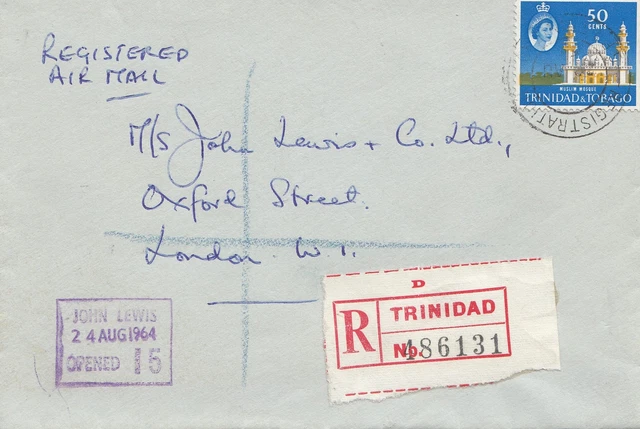 REGISTERED
AIR MAIL
50
CENTS
MUSLIM MOSQUE
TRINIDAD & TOBAGO
REGISTRATI
M/S John Lewis + Co. Ltd.,
Oxford Street.
London W.1.
JOHN LEWIS
24 AUG 1964
OPENED 15
D
R
TRINIDAD
No. 486131